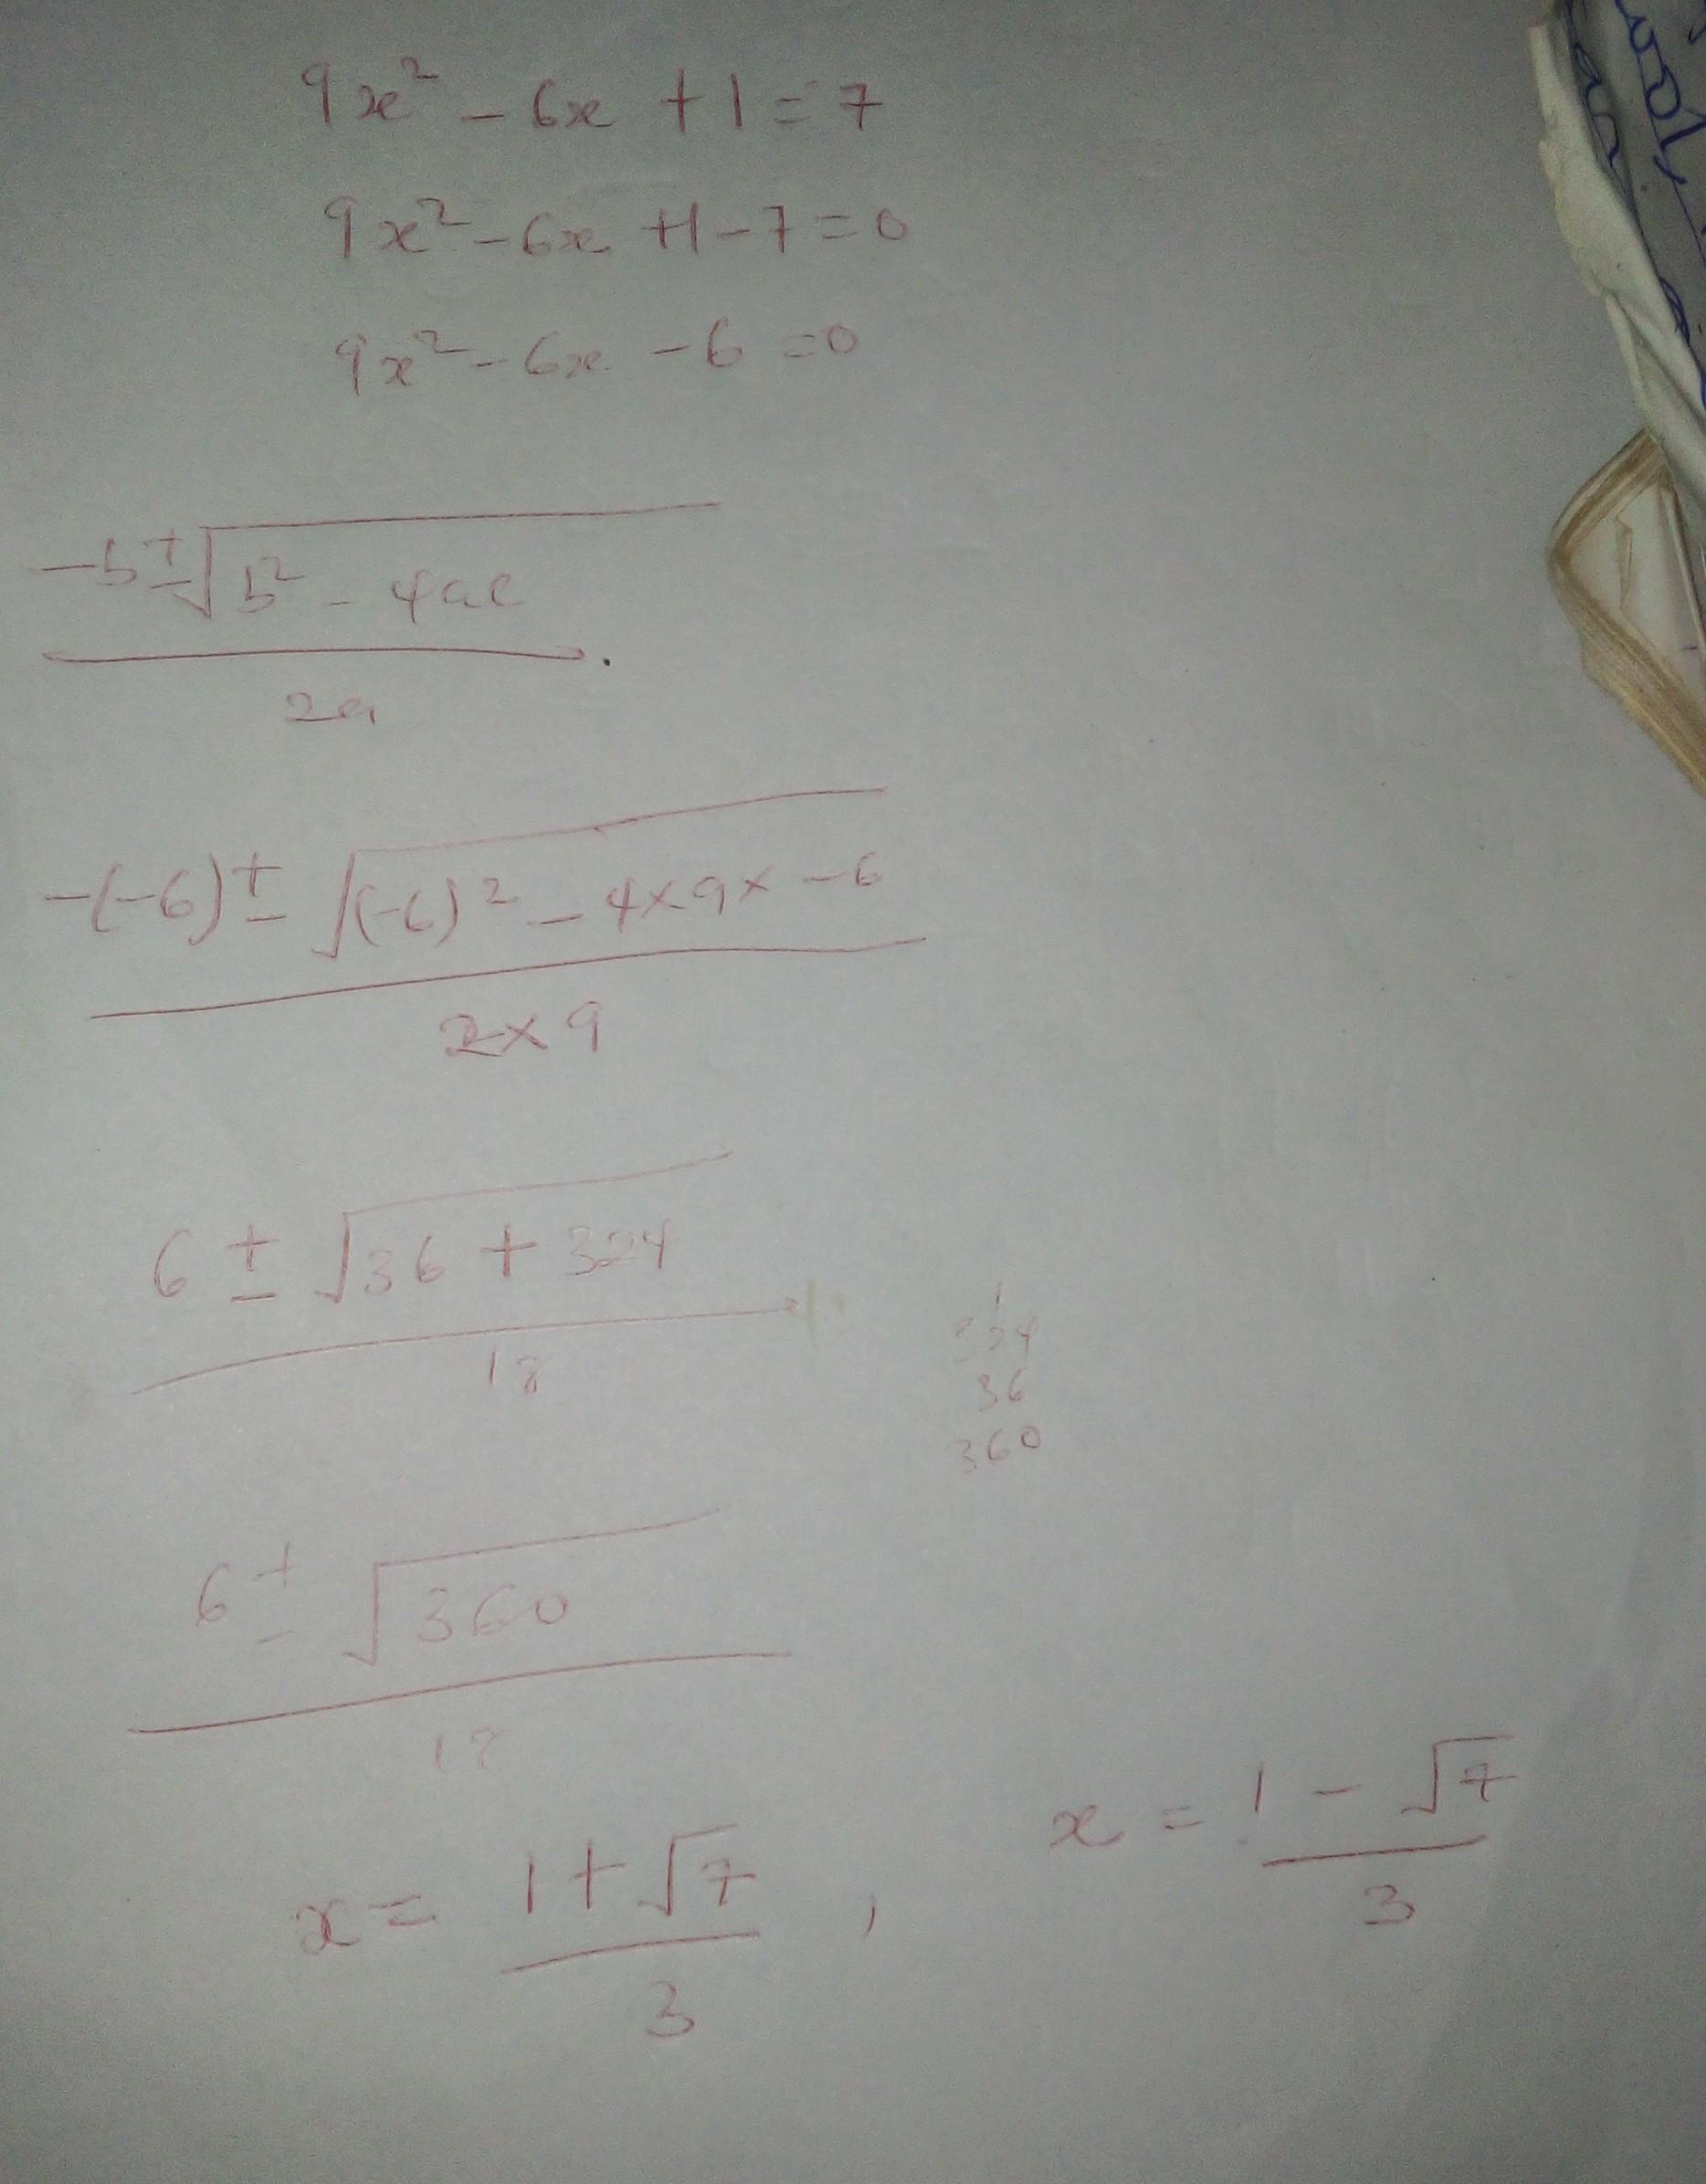 9x² - 6x + 1 = 7
9x² - 6x + 1 - 7 = 0
9x² - 6x - 6 = 0
-b ± √b² - 4ac
2a
-(-6) ± √(-6)² - 4 x 9 x -6
2 x 9
6 ± √36 + 324
18
1
324
36
360
6 ± √360
18
x = 1 + √7 , x = 1 - √7
3 3